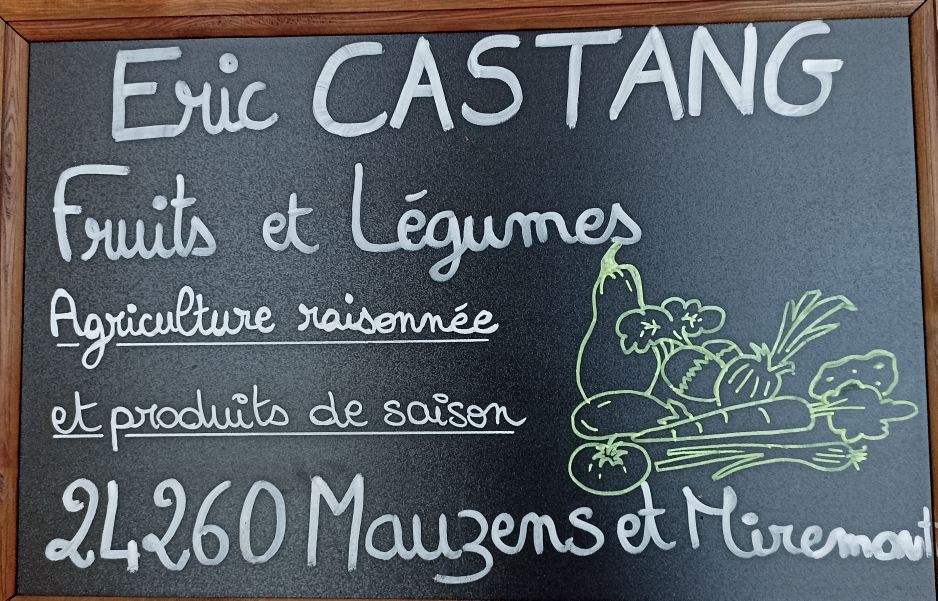 Eric CASTANG
Fruits et Légumes
Agriculture raisonnée
et produits de saison
24260 Mauzens et Miremont